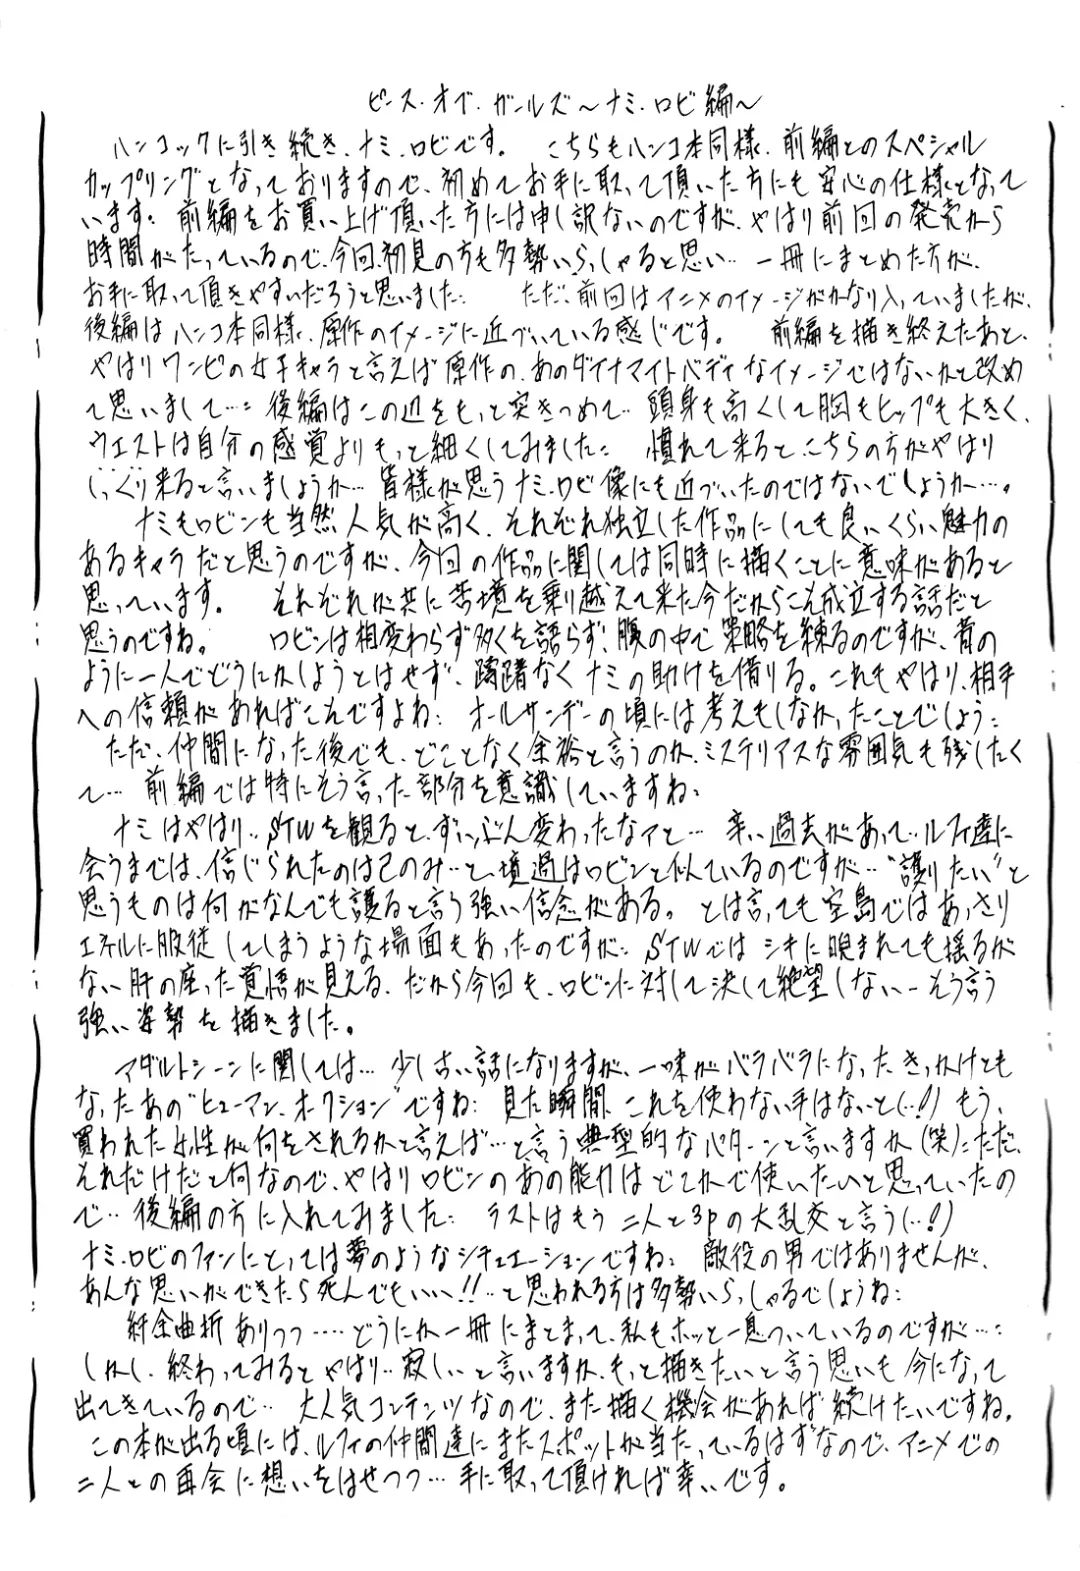 ピース・オブ・ガールズ～ナミ・ロビ編～
ハンコックに引き続き、ナミ・ロビです。 こちらもハンコ本同様、前編とのスペシャル
カップリングとなっておりますので、初めてお手に取って頂いた方にも安心の仕様となって
います。前編をお買い上げ頂いた方には申し訳ないのですが、やはり前回の発売から
時間がたっているので、今回初見の方も多勢いらっしゃると思い… 一冊にまとめた方が、
お手に取って頂きやすいだろうと思いました。 ただ、前回はアニメのイメージがかなり入っていましたが、
後編はハンコ本同様、原作のイメージに近づいている感じです。 前編を描き終えたあと、
やはりワンピの女子キャラと言えば原作の、あのダイナマイトバディなイメージではないかと改め
て思いまして…。後編はこの辺をもっと突きつめて… 頭身も高くして胸もヒップも大きく、
ウエストは自分の感覚よりもっと細くしてみました。 慣れて来ると、こちらの方がやはり
しっくり来ると言いましょうか… 皆様が思うナミ・ロビ像にも近づいたのではないでしょうか…。
ナミもロビンも当然人気が高く、それぞれ独立した作品にしても良いくらい魅力の
あるキャラだと思うのですが、今回の作品に関しては同時に描くことに意味があると
思っています。 それぞれが共に苦境を乗り越えて来た今だからこそ成立する話だと
思うのですね。 ロビンは相変わらず多くを語らず、腹の中で策略を練るのですが、昔の
ように一人でどうにかしようとはせず、躊躇なくナミの助けを借りる。これもやはり、相手
への信頼があればこそですよね。オールサンデーの頃には考えもしなかったことでしょう。
ただ、仲間になった後でも、どことなく余裕と言うのか、ミステリアスな雰囲気も残したく
て… 前編では特にそう言った部分を意識していますね。
ナミはやはり…STWを観ると、ずいぶん変わったなァと… 辛い過去があって…ルフィ達に
会うまでは、信じられたのは己のみ…と、境遇はロビンと似ているのですが…“護りたい”と
思うものは何がなんでも護ると言う強い信念がある。とは言っても空島ではあっさり
エネルに服従してしまうような場面もあったのですが。STWではシキに睨まれても揺るが
ない肝の座った覚悟が見える。だから今回も、ロビンに対して決して絶望しない…そう言う
強い姿勢を描きました。
アダルトシーンに関しては… 少し古い話になりますが、一味がバラバラになったきっかけとも
なったあの“ヒューマン・オークション”ですね。見た瞬間、これを使わない手はないと(…！)もう、
買われた女性が何をされるかと言えば…と言う典型的なパターンと言いますか(笑)。ただ、
それだけだと何なので、やはりロビンのあの能力はどこかで使いたいと思っていたの
で… 後編の方に入れてみました。ラストはもう二人と3pの大乱交と言う(…！)
ナミ・ロビのファンにとっては夢のようなシチュエーションですね。敵役の男ではありませんが、
あんな思いができたら死んでもいい！！…と思われる方は多勢いらっしゃるでしょうね。
紆余曲折ありつつ…どうにか一冊にまとまって、私もホッと一息ついているのですが…。
しかし、終わってみるとやはり…寂しいと言いますか、もっと描きたいと言う思いも今になって
出てきているので… 大人気コンテンツなので、また描く機会があれば続けたいですね。
この本が出る頃には、ルフィの仲間達にまたスポットが当たっているはずなので、アニメでの
二人との再会に想いをはせつつ…手に取って頂ければ幸いです。